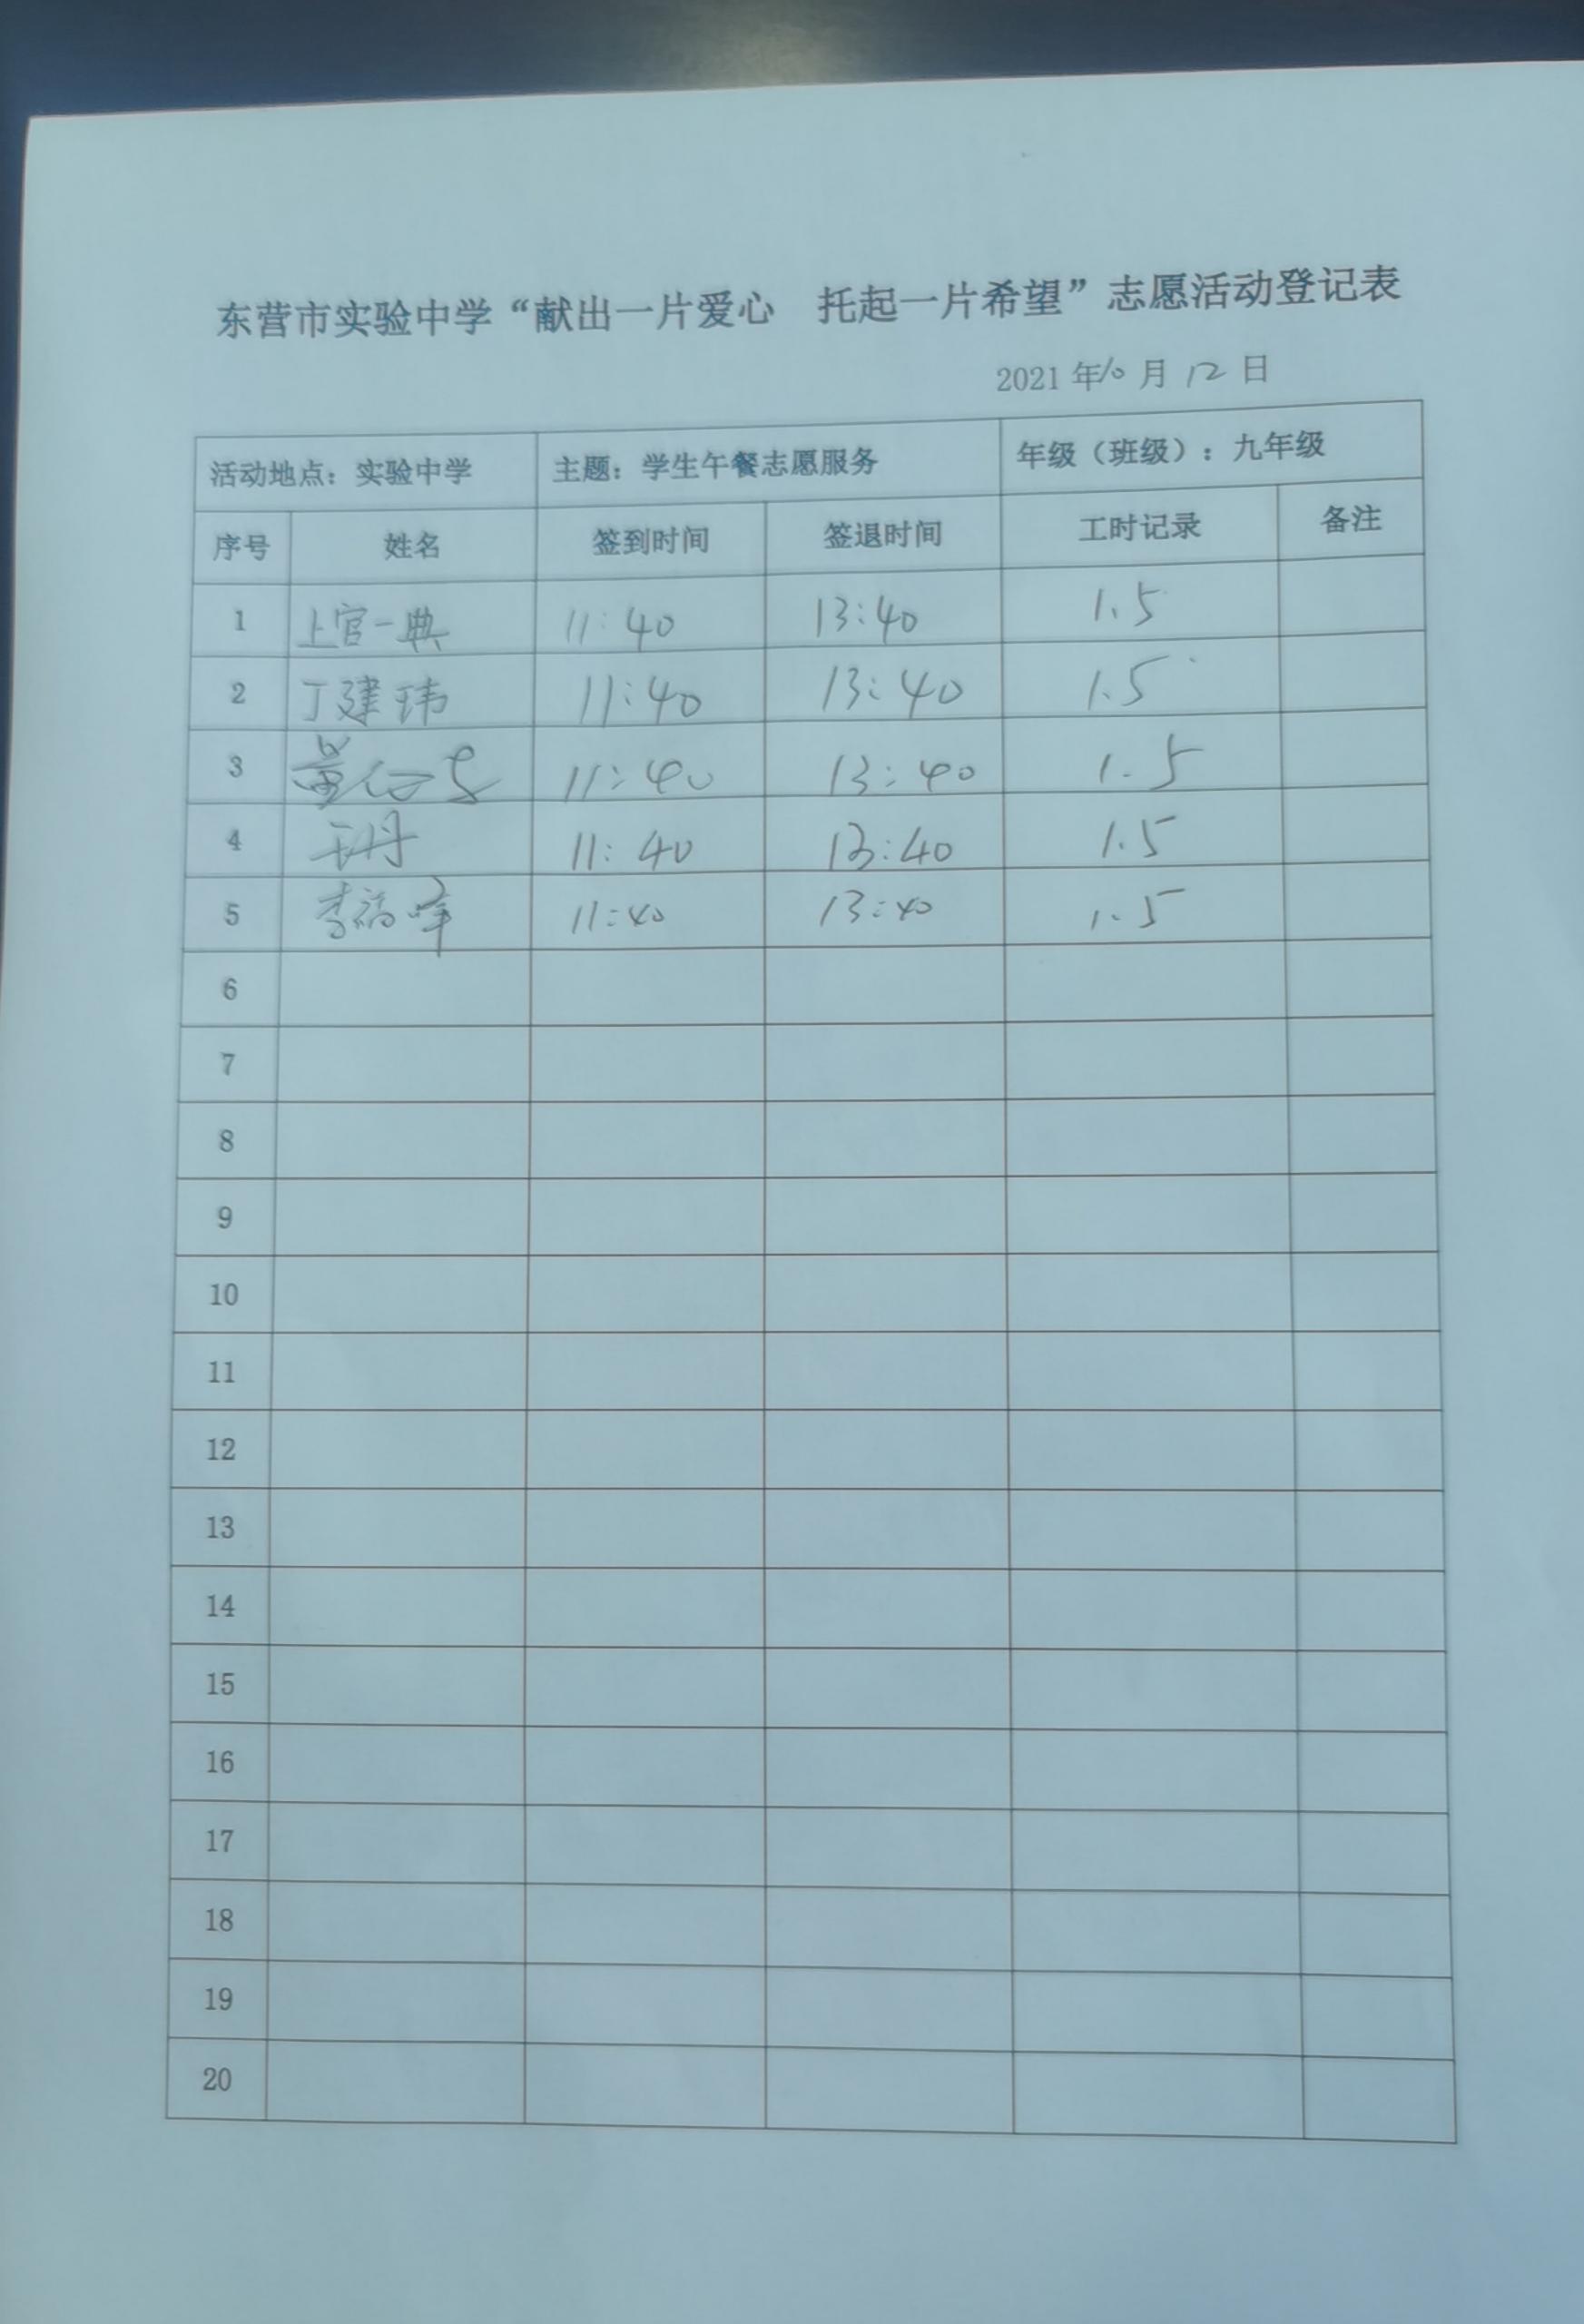 东营市实验中学“献出一片爱心 托起一片希望”志愿活动登记表
2021 年 10 月 12 日
活动地点：实验中学 主题：学生午餐志愿服务 年级（班级）：九年级
序号 姓名 签到时间 签退时间 工时记录 备注
1 上官一典 11:40 13:40 1.5
2 丁建玮 11:40 13:40 1.5
3 11:40 13:40 1.5
4 11:40 13:40 1.5
5 李福峰 11:40 13:40 1.5
6
7
8
9
10
11
12
13
14
15
16
17
18
19
20